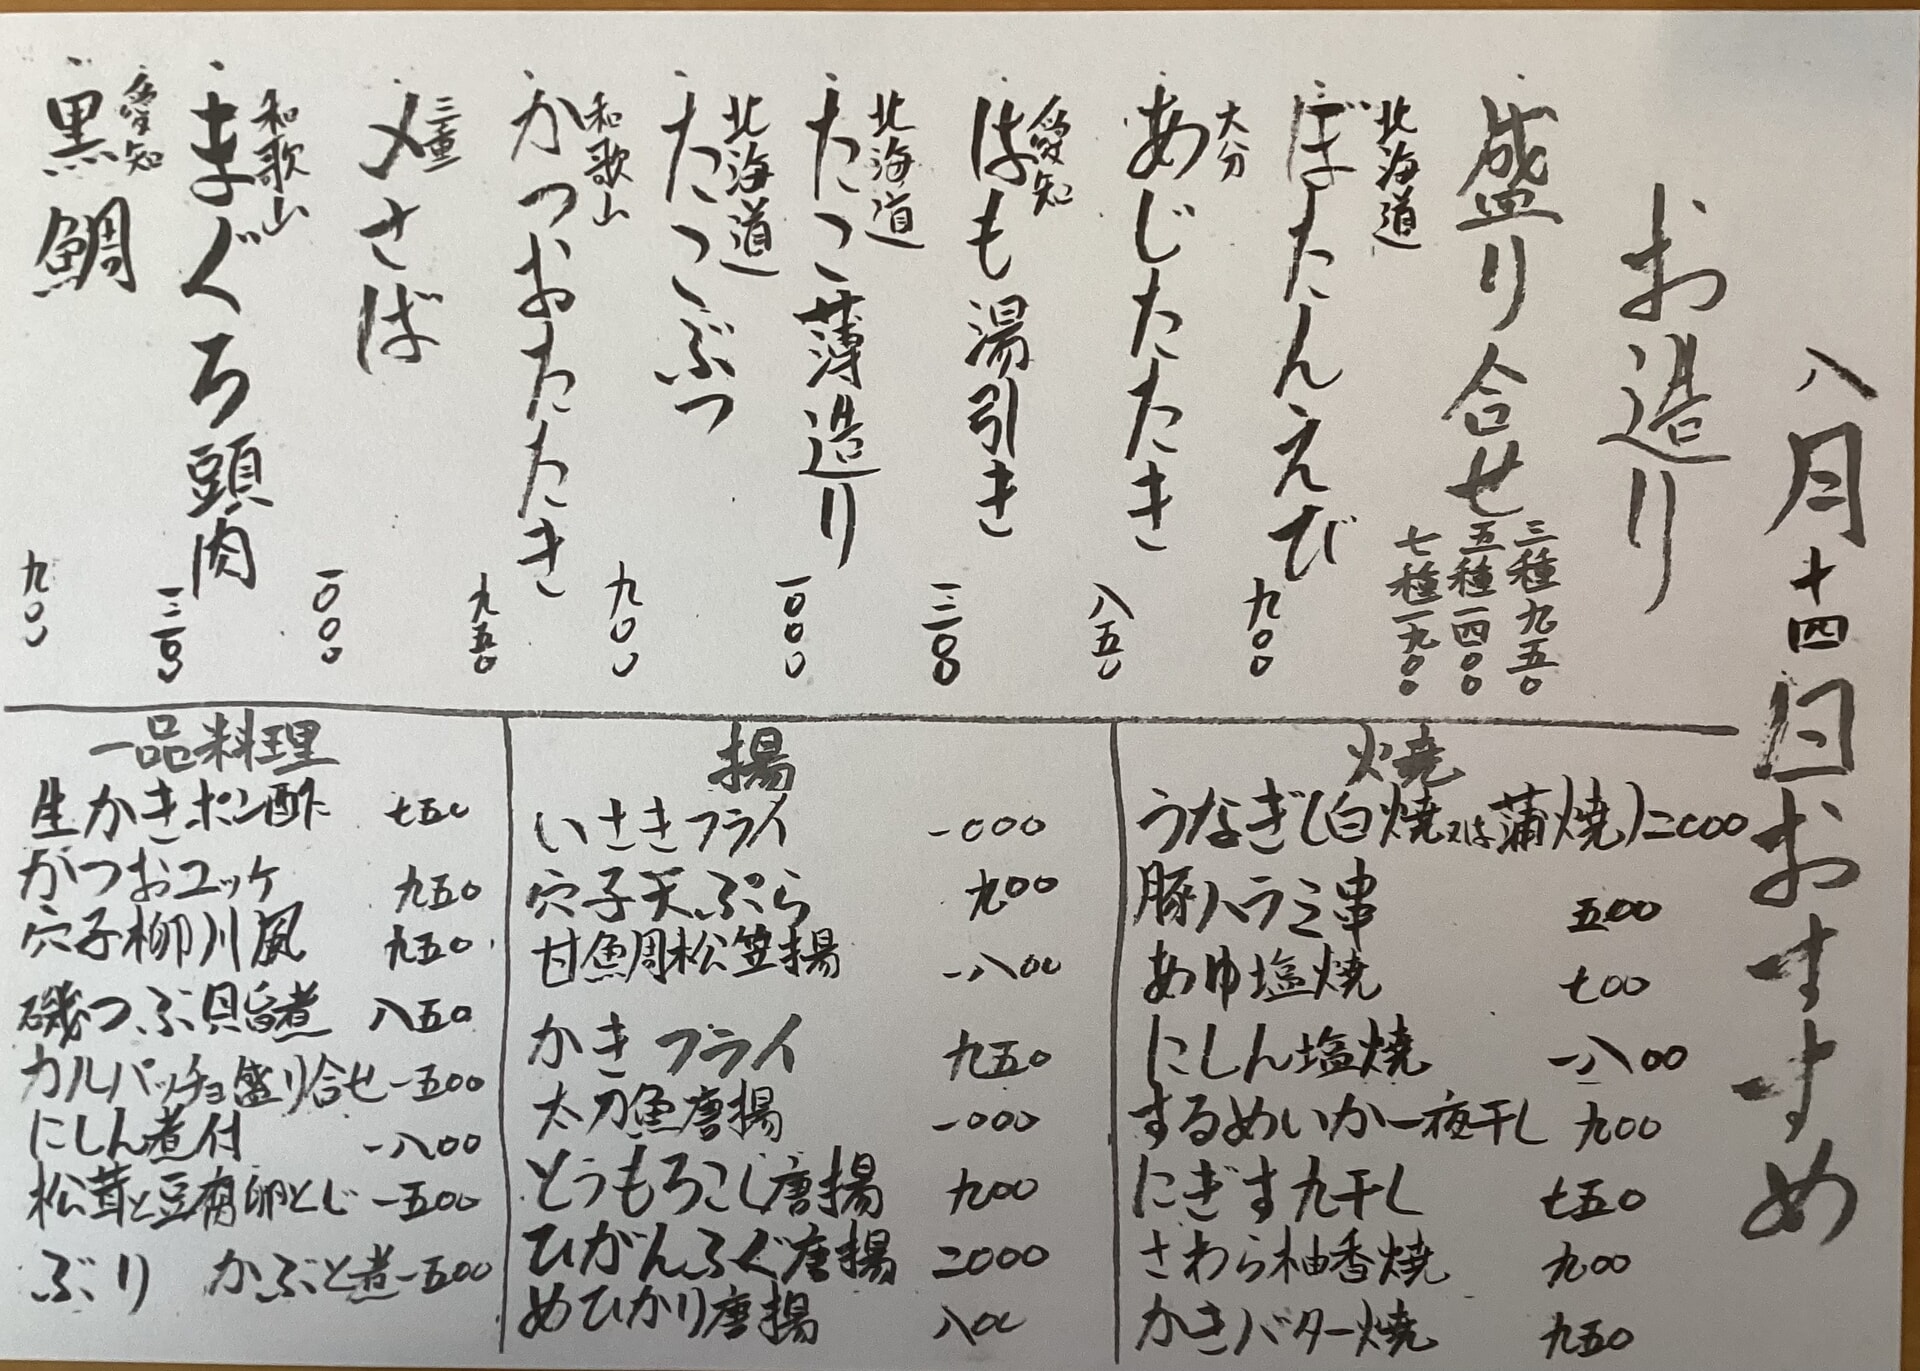 八月十四日おすすめ
お造り
盛り合せ
三種九五〇
五種一四〇〇
七種一九〇〇
北海道
ぼたんえび 九〇〇
大分
あじたたき 八五〇
愛知
はも湯引き 一三〇〇
北海道
たこ薄造り 一〇〇〇
北海道
たこぶつ 九〇〇
和歌山
かつおたたき 九五〇
三重
〆さば 一〇〇〇
和歌山
まぐろ頭肉 一三〇〇
愛知
黒鯛 九〇〇
焼
うなぎ(白焼又は蒲焼)二〇〇〇
豚ハラミ串 五〇〇
あゆ塩焼 七〇〇
にしん塩焼 一八〇〇
するめいか一夜干し 九〇〇
にぎす丸干し 七五〇
さわら柚香焼 九〇〇
かきバター焼 九五〇
揚
いさきフライ 一〇〇〇
穴子天ぷら 九〇〇
甘鯛松笠揚 一八〇〇
かきフライ 九五〇
太刀魚唐揚 一〇〇〇
とうもろこし唐揚 九〇〇
ひがんふぐ唐揚 二〇〇〇
めひかり唐揚 八〇〇
一品料理
生かきポン酢 七五〇
かつおユッケ 九五〇
穴子柳川風 九五〇
磯つぶ貝旨煮 八五〇
カルパッチョ盛り合せ 一五〇〇
にしん煮付 一八〇〇
松茸と豆腐卵とじ 一五〇〇
ぶり かぶと煮 一五〇〇